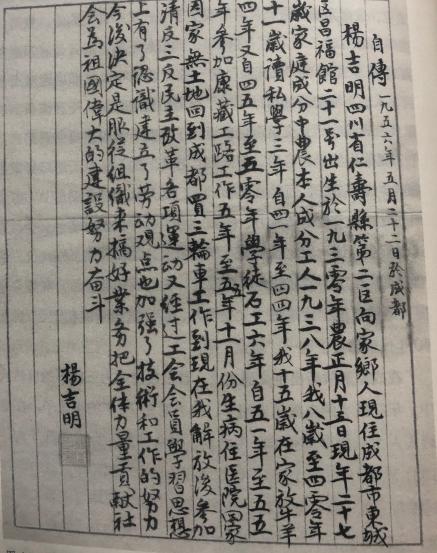 自傳 一九五六年五月二十一日於成都
楊吉明四川省仁壽縣第二区向家鄉人現住成都市東城
区昌福館二十一号出生於一九三零年農正月十三日現年二十七
歲家庭成分中農本人成分工人一九三八年我八歲至四零年
十一歲讀私學三年自四一年至四四年我十五歲在家放牛羊
四年又自四五年至五零年學徒石工六年自五一年至五五
年參加康藏工路工作五年至五五年十一月份生病住医院回家
因家無土地回到成都買三輪車工作到現在我解放後參加
清反三反民主改革各項運动又經过工会会員學習思想
上有了認識建立了劳动观点也加強了技術和工作的努力
今後決定是服從組織來搞好業务把全体力量貢献社
会為祖國偉大的建設努力奋斗
楊吉明